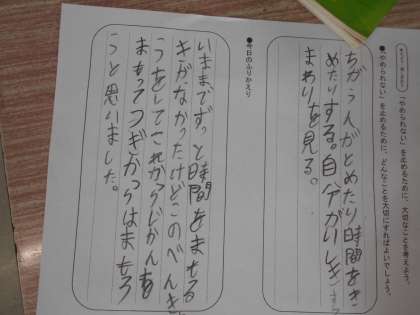 「やめられない」を止めるために、大切なことを考えよう。
●「やめられない」を止めるために、どんなことを大切にすればよいでしょう。
ちがう人がとめたり時間をき
めたりする。自分がいしきする
まわりを見る。
●今日のふりかえり
いままでずっと時間をまもる
きがなかったけどこのべんき
うをしてこれからじかんを
まもってつぎからはまもろ
うと思いました。